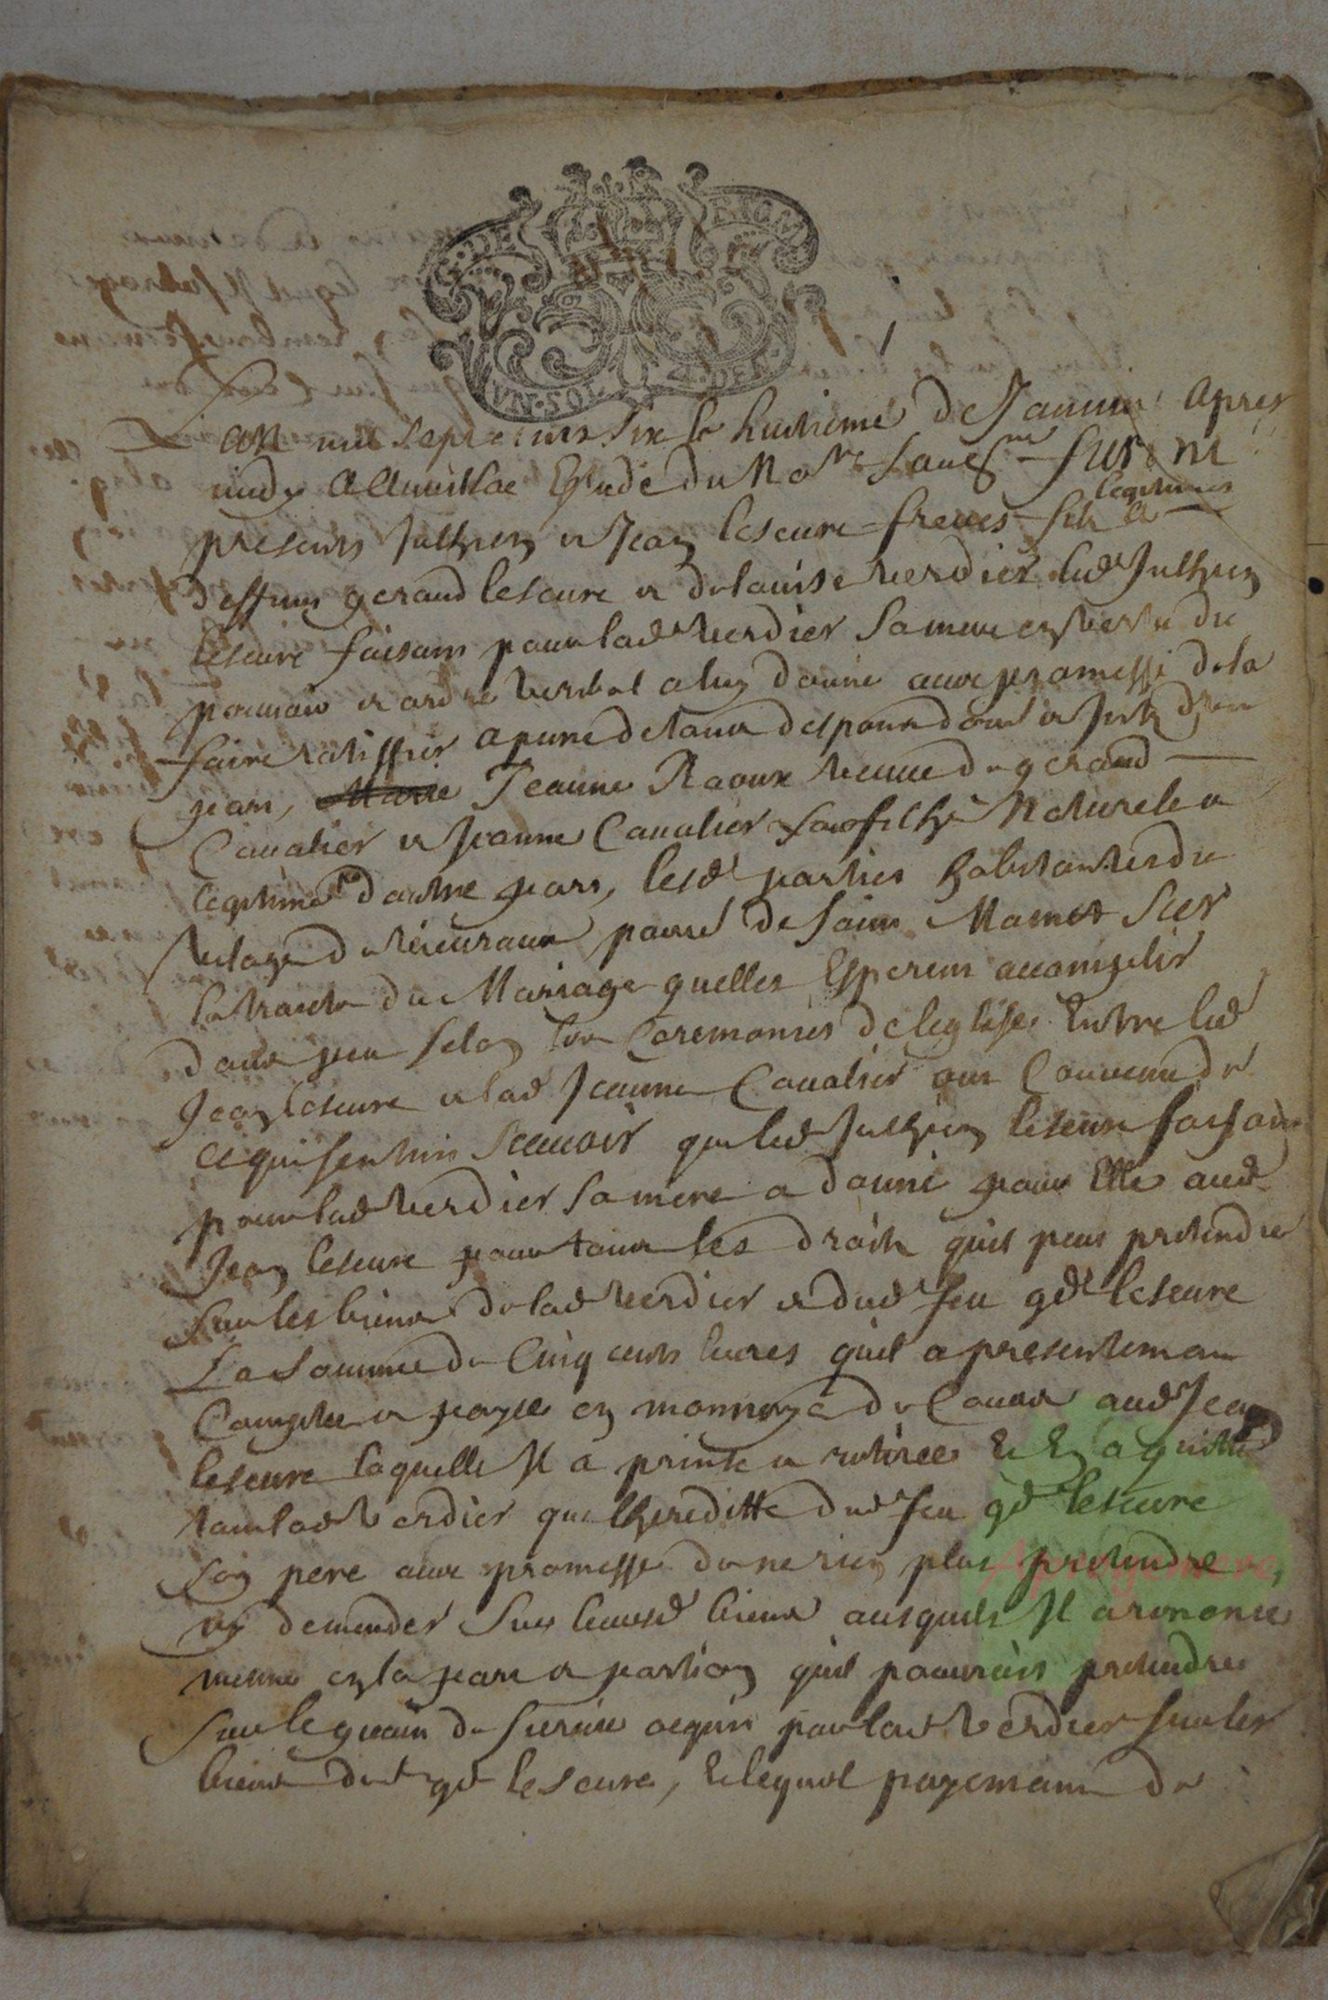 G. DE RIOM
VN. SOL 4. DEN.
L'an mil sept cens six le huitieme de Janvier apres
midy a Aurillac Etude du No.re sous.ne furent
presens Julhien et Jean leseure freres fils legitimes a
deffunt geraud leseure et de louise verdier led Julhien
leseure faisant pour lad verdier sa mere en vertu du
pouvoir et ordre verbal a luy donné avec promesse de la
faire ratiffier a peine de tous despans dom et Intz d'une
part, Jeanne Raoux veuve de geraud
Cavalier et Jeanne Cavalier sa filhe Naturele et
legitime d'autre part, lesd parties habitantes du
vilage de parr. de Saint Mamet Sur
le traicte du Mariage quelles Esperent accomplir
dans peu selon les Ceremonies de leglise Entre led
Jean leseure et lad Jeanne Cavalier ont Convenu de
ce qui sensuit Scavoir que led Julhien leseure faisant
pour lad verdier sa mere a donné pour Elle aud
Jean leseure pour tous les droits quil peut pretendre
sur les biens de lad verdier et dud feu gd leseure
La somme de Cinq cens livres quil a presentement
Comptée et payée en monnoye de Cours aud Jean
leseure laquelle Il a prinse et retirée Et En a quitté
tant lad verdier que lhereditte dud feu gd leseure
son pere avec promesse de ne rien plus pretendre,
ny demender sur leursd biens ausquels Il a renoncé
mesme en la part et portion quil pouvoit pretendre
sur le gain de survie acquis par lad verdier sur les
biens dud gd leseure, Et lequel payement de